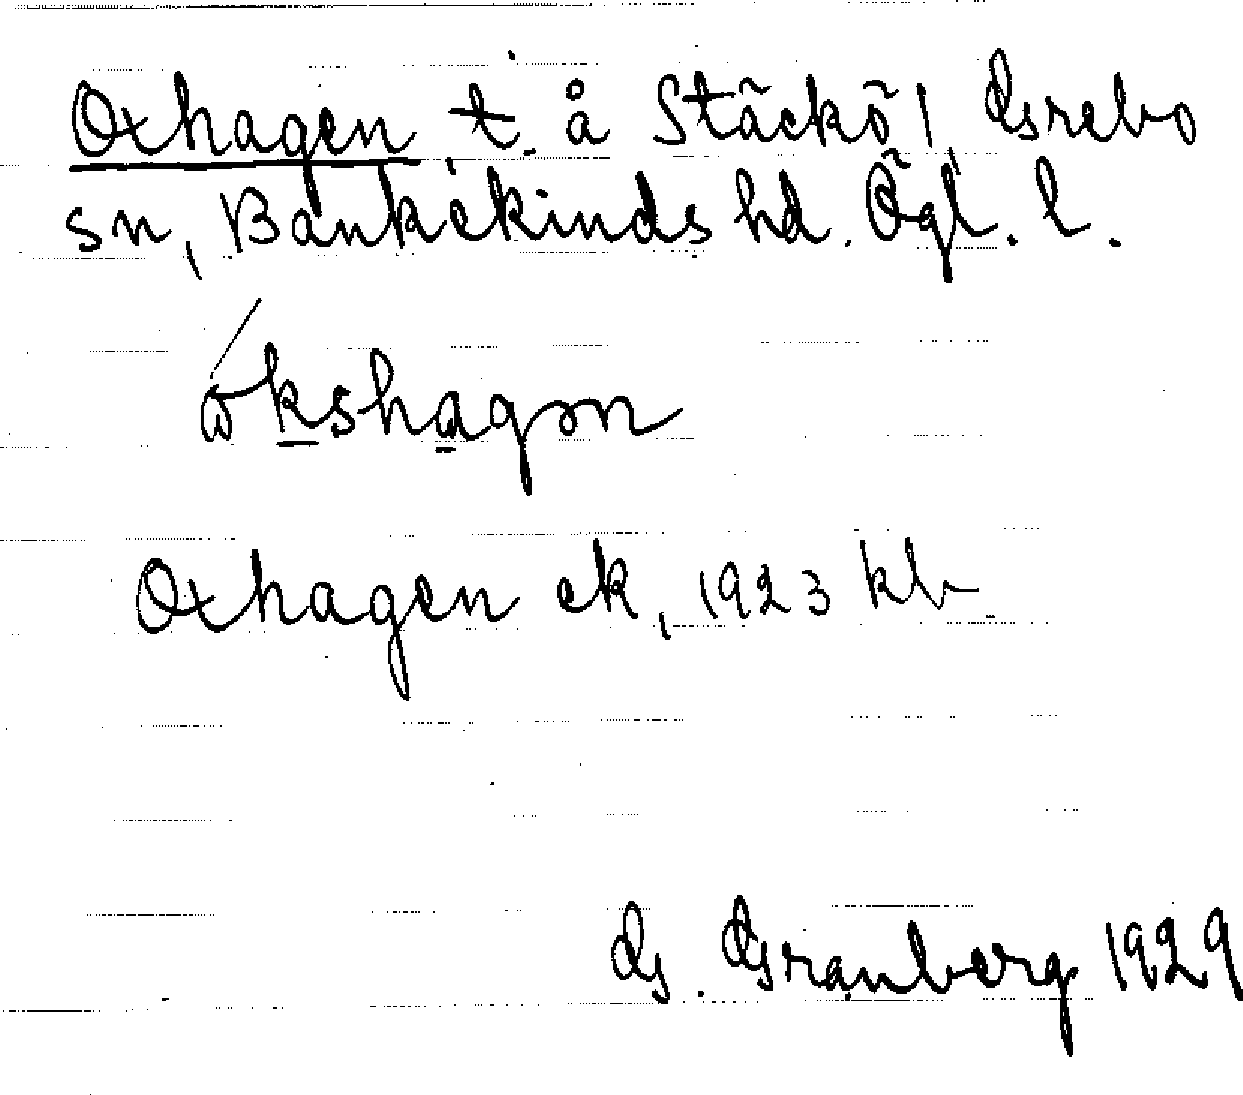 Oxhagen t. å Stäckö, Grebo
sn, Bankekinds hd. Ögl. l.
ókshagən
Oxhagen ek, 1923 kb
G. Granberg 1929